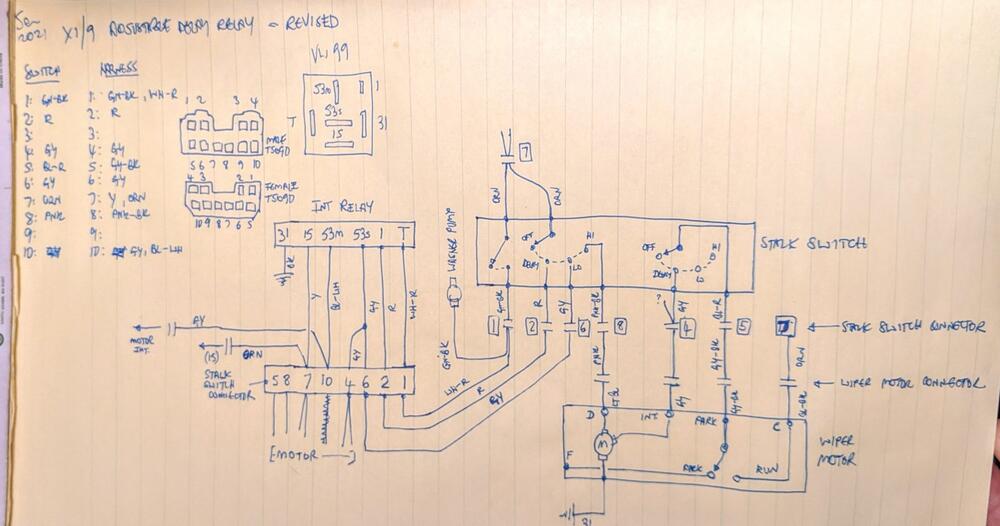 Jan
2021 X1/9 ADJUSTABLE DELAY RELAY - REVISED
SWITCH HARNESS
1: GN-BK 1: GN-BK, WH-R
2: R 2: R
3: 3:
4: GY 4: GY
5: BL-R 5: GY-BK
6: GY 6: GY
7: ORN 7: Y, ORN
8: PNK 8: PNK-BK
9: 9:
10: 10: GY, BL-WH
1 2 3 4
MALE
TS09D
5 6 7 8 9 10
4 3 2 1
FEMALE
TS09D
10 9 8 7 6 5
53m 1
T 53s 31
15
INT RELAY
31 15 53m 53s 1 T
BK Y BL-WH GY R WH-R
GY
GY
MOTOR
INT.
(15) ORN
STALK
SWITCH
CONNECTOR
5 8 7 10 4 6 2 1
[MOTOR]
WASHER PUMP
GN-BK
WH-R
R
GY
7
ORN ORN
OFF
DELAY
LO
HI
OFF
DELAY
HI
STALK SWITCH
G-BK R GY PNK-BK ? GY BL-R
1 2 6 8 4 5
STALK SWITCH CONNECTOR
PNK GY-BK ORN
WIPER MOTOR CONNECTOR
GY GY-BK BL-BK
D INT PARK C
M
F
PARK RUN
WIPER
MOTOR
31